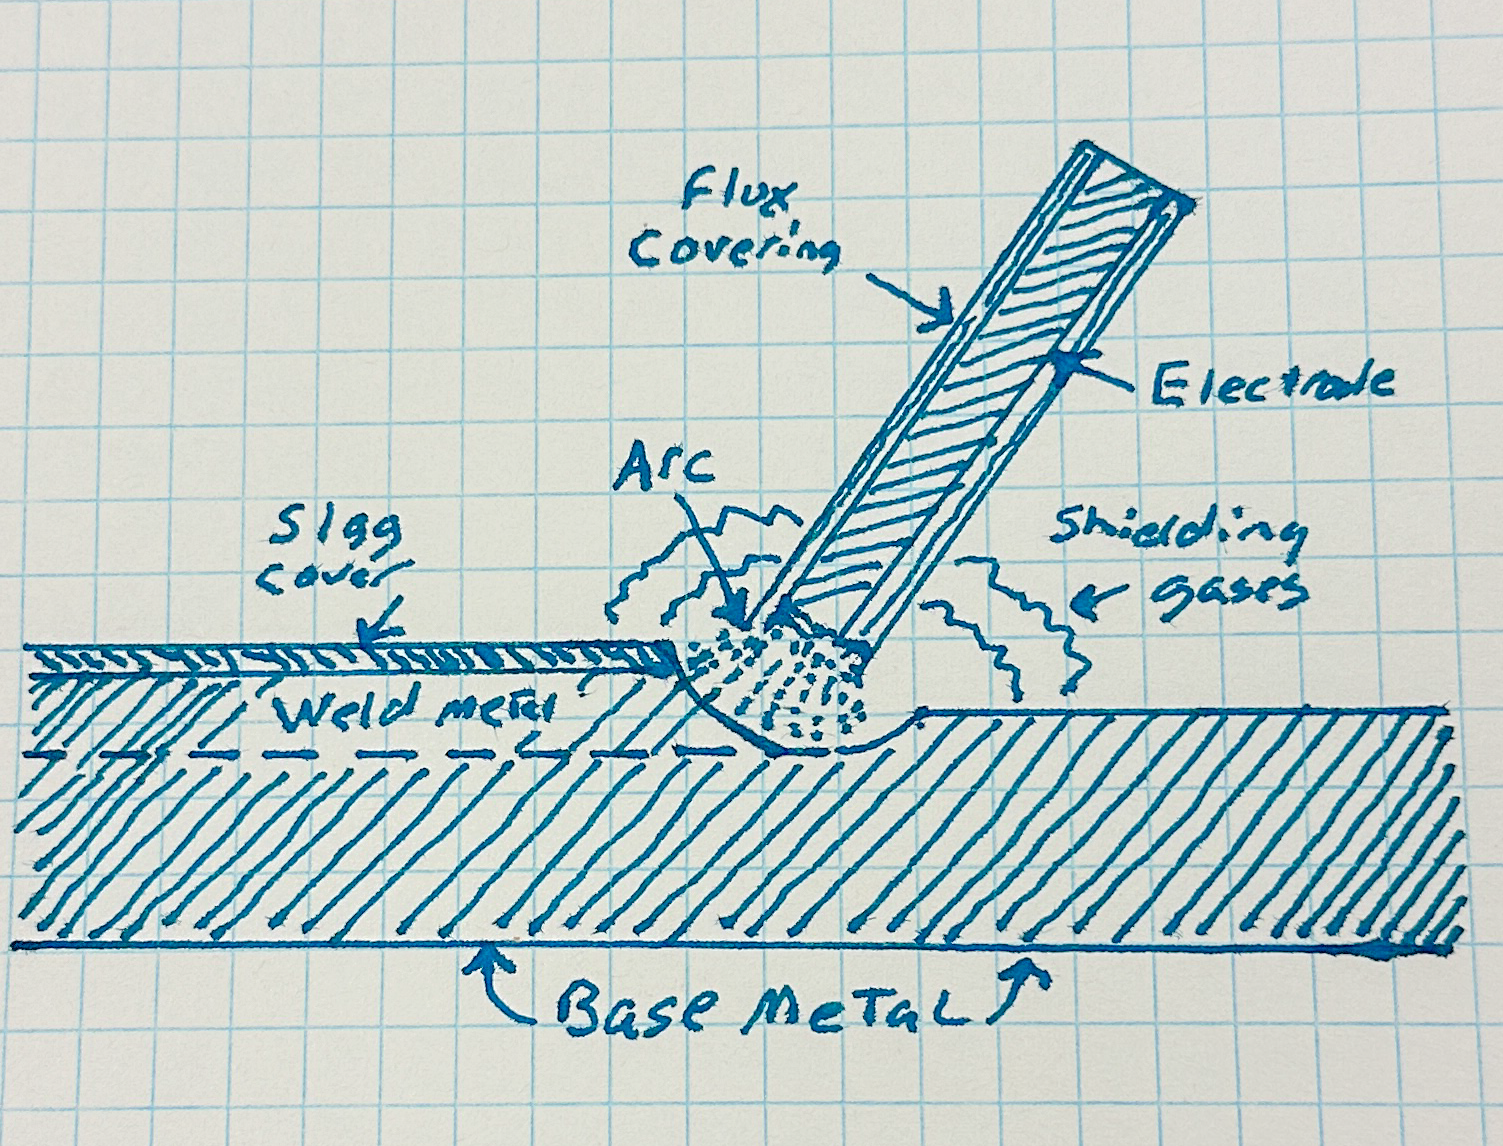 Flux
Covering
Electrode
Arc
Slag
cover
Shielding
gases
Weld metal
Base Metal